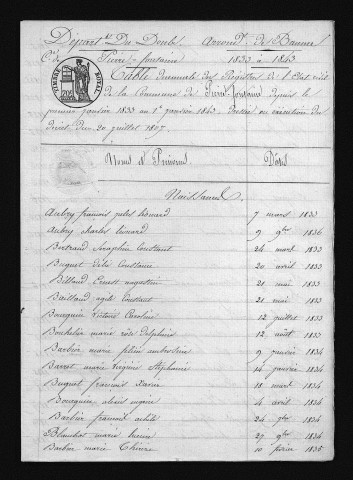 Départ.t Du Doubs. Arrond.t de Baume
C.e de Pierre-fontaine 1833 à 1843
Table décennale des Registres de l'Etat civil
de la Commune de Pierre-fontaine depuis le
premier janvier 1833 au 1.er janvier 1843. Dressée en exécution du
décret du 20 juillet 1807.
TIMBRE ROYAL
Noms et Prénoms Dates
Naissances
Aubry françois 7 mars 1833
Aubry charles léonard 9 9bre 1836
Bertrand Séraphin Constant 24 mars 1833
Buguet Constance 20 avril 1833
Billand Ernest augustin 21 mai 1833
21 mai 1833
Bourquin Caroline 12 juillet 1833
Bouhelier marie rose delphine 12 août 1833
Barbier marie ambrosine 9 janvier 1834
Barret marie virginie Stéphanie 14 janvier 1834
Buguet françois Xavier 18 mars 1834
Bourquin alexis eugène 4 avril 1834
Barbier françois achile 24 7bre 1834
marie lucine 27 9bre 1834
Barbier marie 10 février 1835